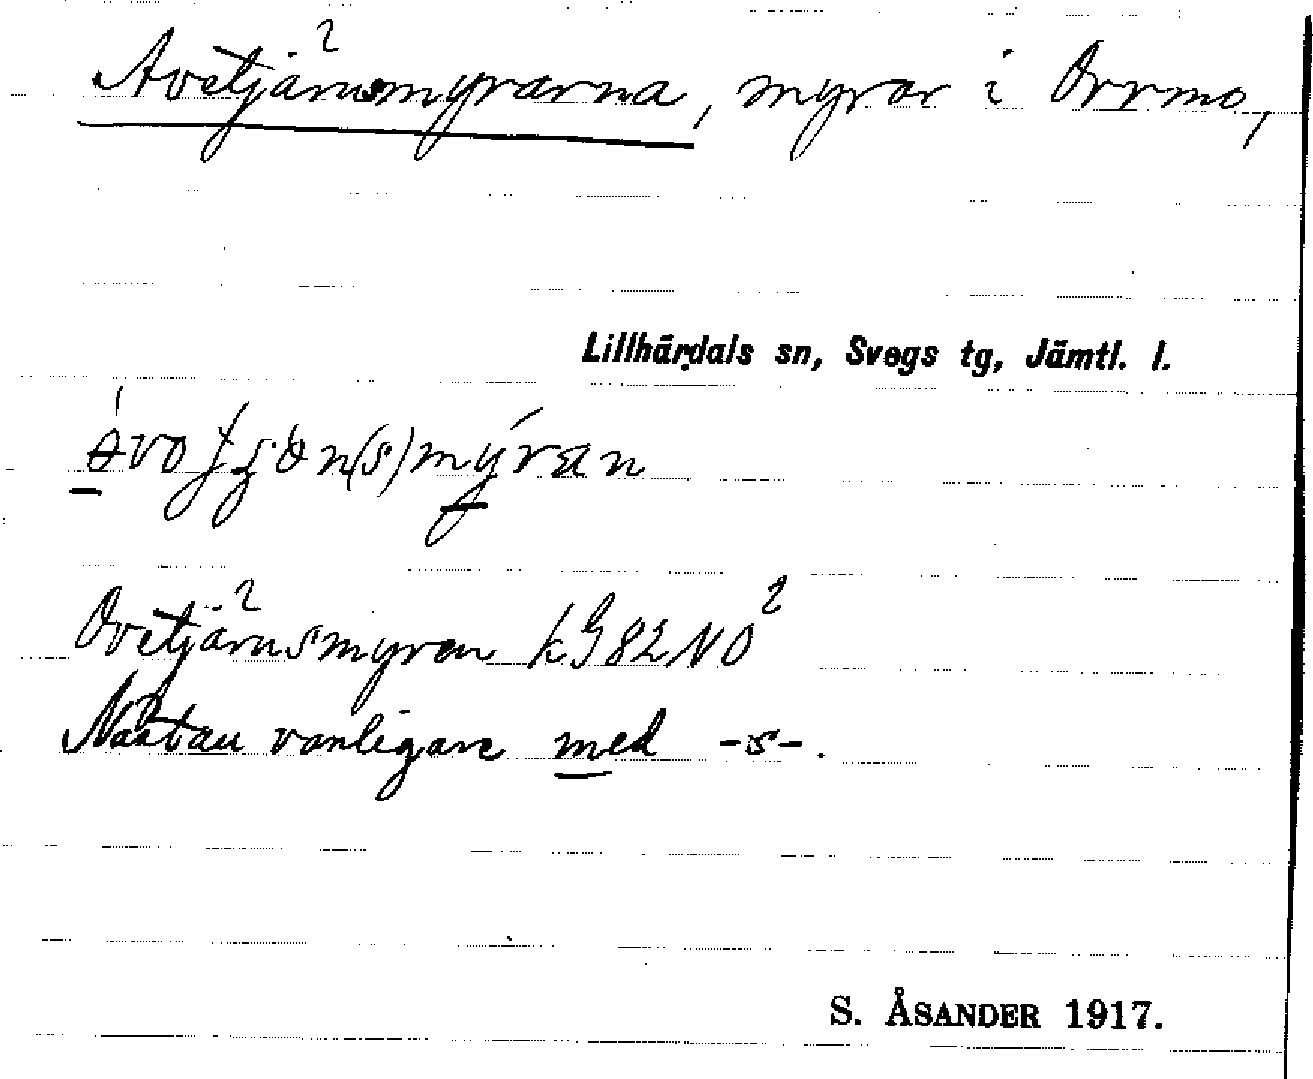 Avetjärnsmyrarna, myrar i Orrmo,
Lillhärdals sn, Svegs tg, Jämtl. l.
Ovetjärnsmyren kG82NO²
Nästan vanligare med -s-.
S. ÅSANDER 1917.